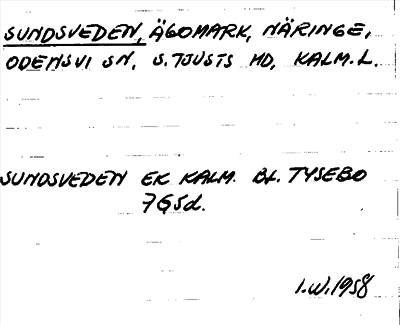 SUNDSVEDEN, ÄGOMARK, NÄRINGE,
ODENSVI SN, S. TJUSTS HD, KALM. L.
SUNDSVEDEN EK KALM. BL. TYSEBO
7G5d.
I.W. 1958